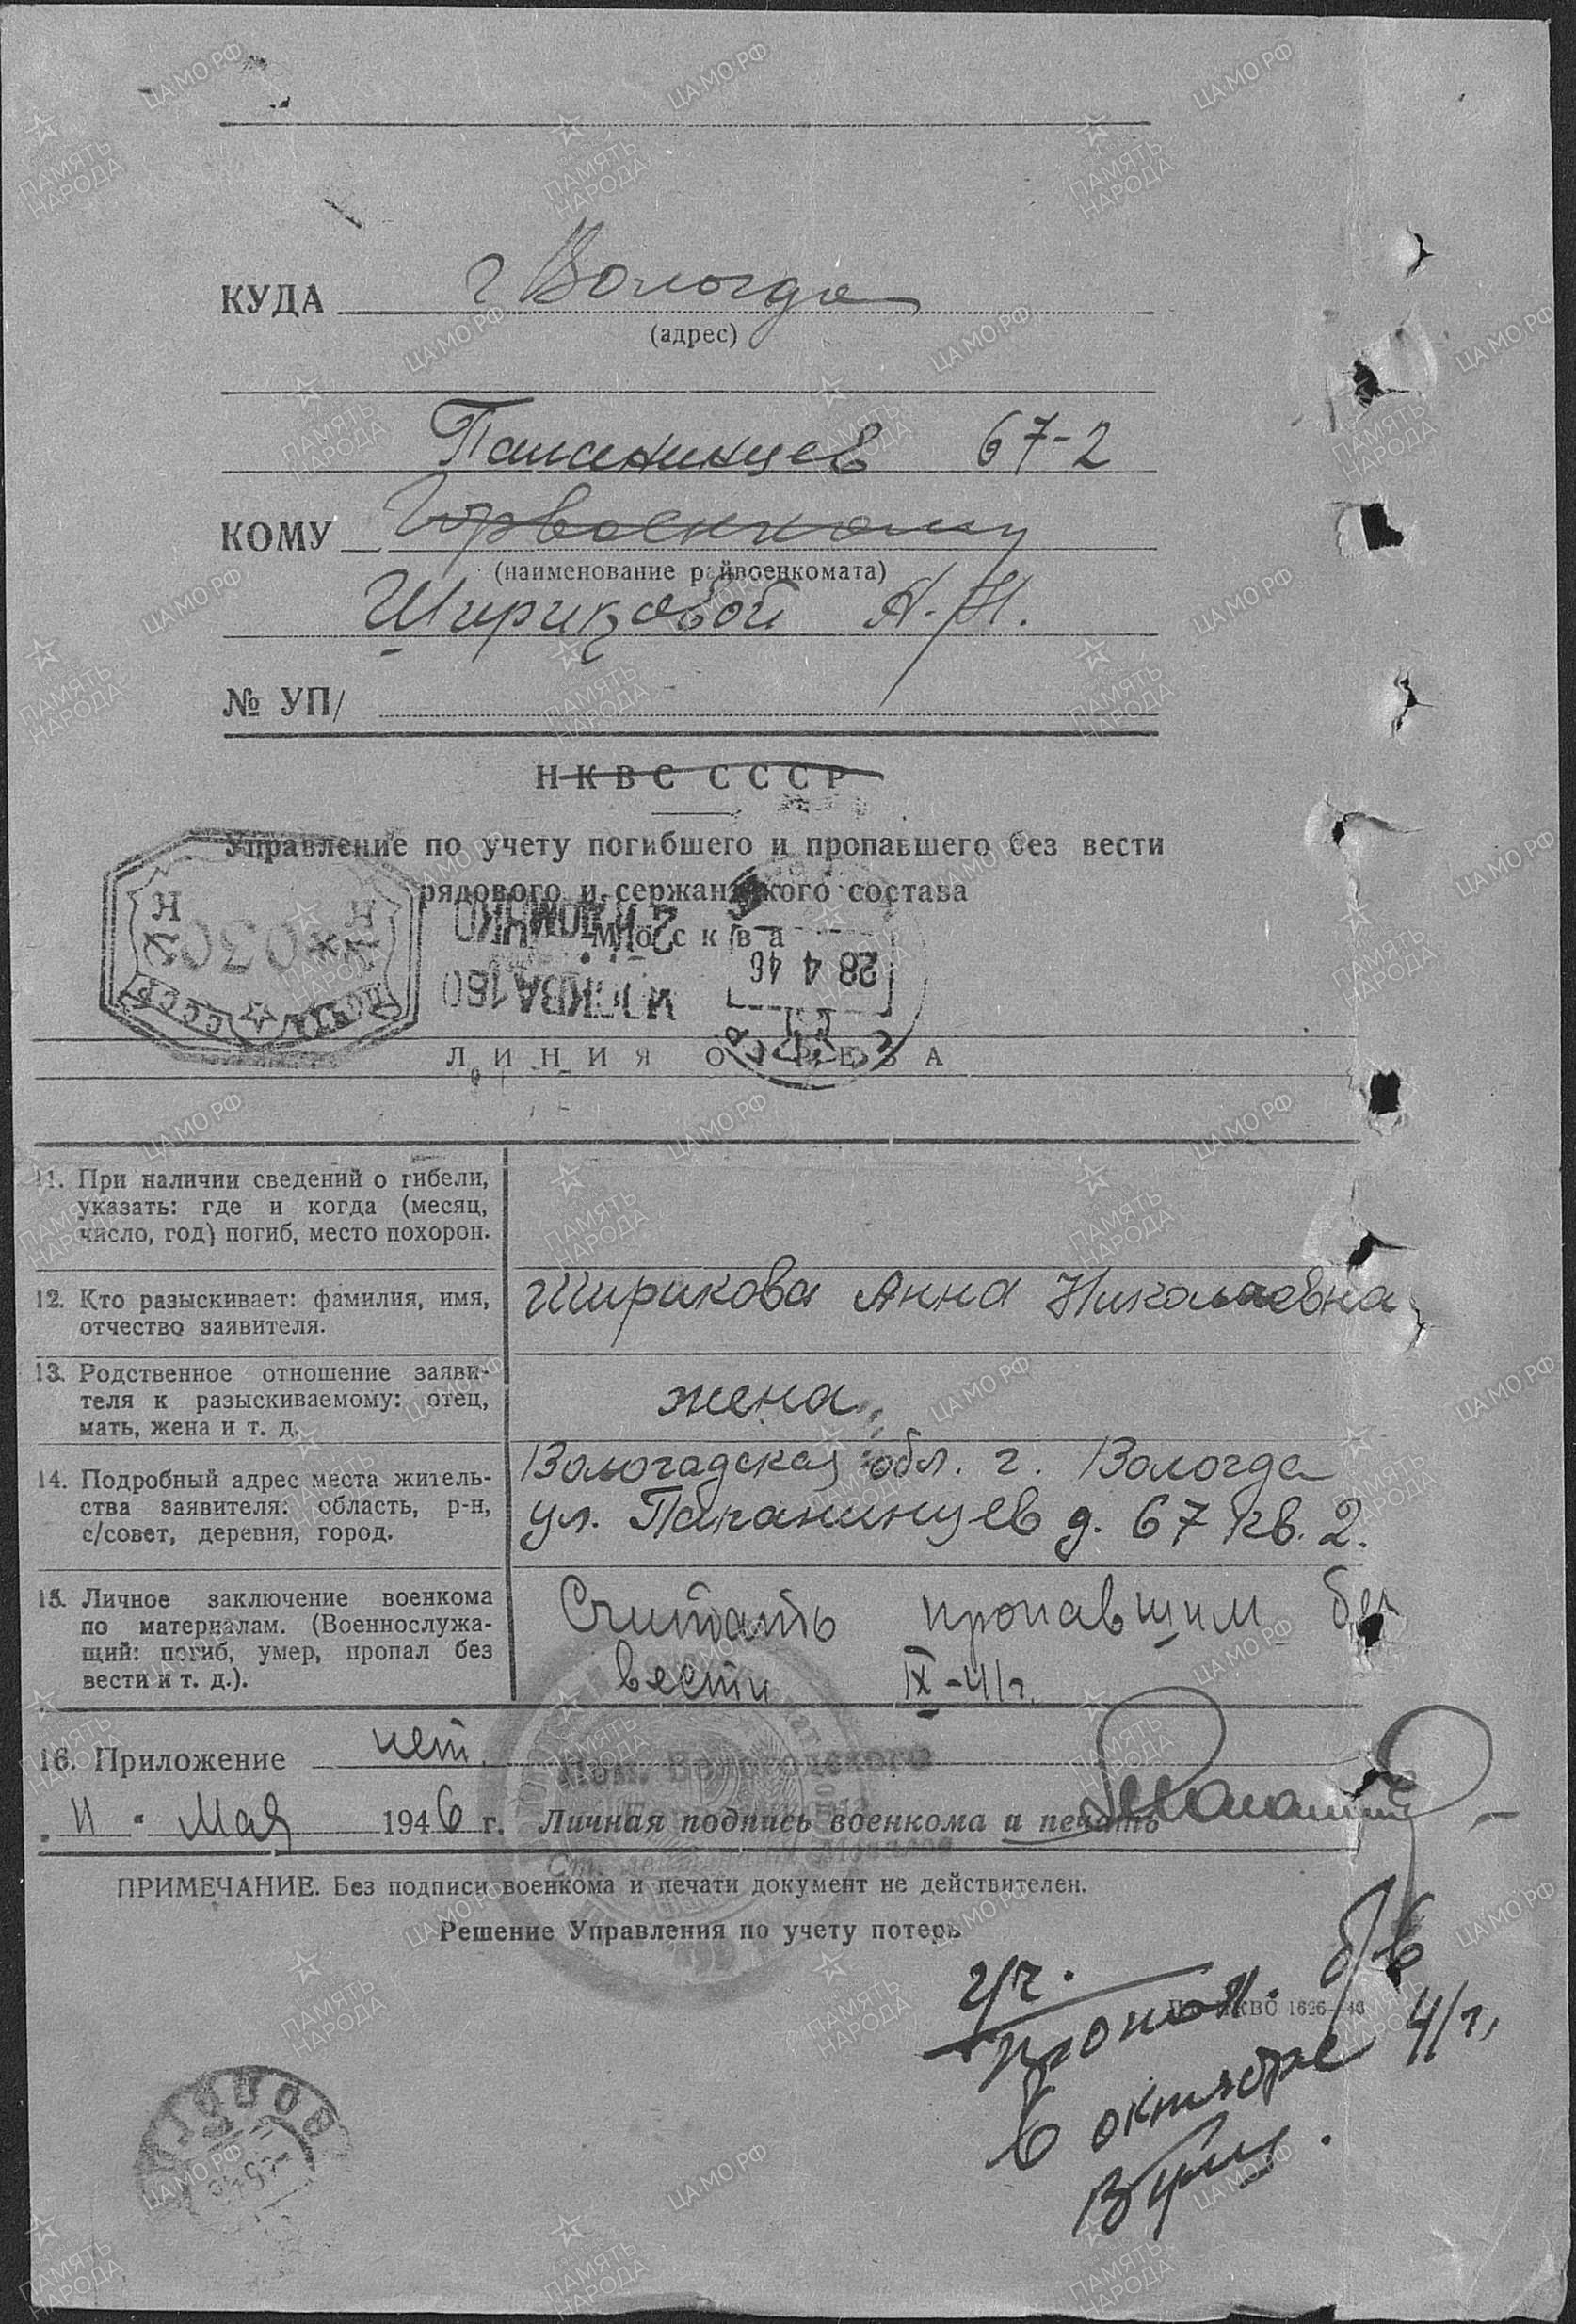 КУДА г Вологда
(адрес)
Папанинцев 67-2
КОМУ Горвоенкому
(наименование райвоенкомата)
Шириковой А. Н.
№ УП/
НКВС СССР
Управление по учету погибшего и пропавшего без вести
рядового и сержантского состава
Москва
28 4 46
ЛИНИЯ ОТРЕЗА
11. При наличии сведений о гибели,
указать: где и когда (месяц,
число, год) погиб, место похорон.
12. Кто разыскивает: фамилия, имя,
отчество заявителя.
Ширикова Анна Николаевна
13. Родственное отношение заяви-
теля к разыскиваемому: отец,
мать, жена и т. д.
жена
14. Подробный адрес места житель-
ства заявителя: область, р-н,
с/совет, деревня, город.
Вологадская обл. г. Вологда
ул. Папанинцев д. 67 кв. 2.
15. Личное заключение военкома
по материалам. (Военнослужа-
щий: погиб, умер, пропал без
вести и т. д.).
Считать пропавшим без
вести IX-41г.
16. Приложение нет.
Пом. Вологодского
"11" Мая 1946 г. Личная подпись военкома и печать
ПРИМЕЧАНИЕ. Без подписи военкома и печати документ не действителен.
Решение Управления по учету потерь
пропал. б/в
в октябре 41г.
ЦАМО РФ
ПАМЯТЬ
НАРОДА